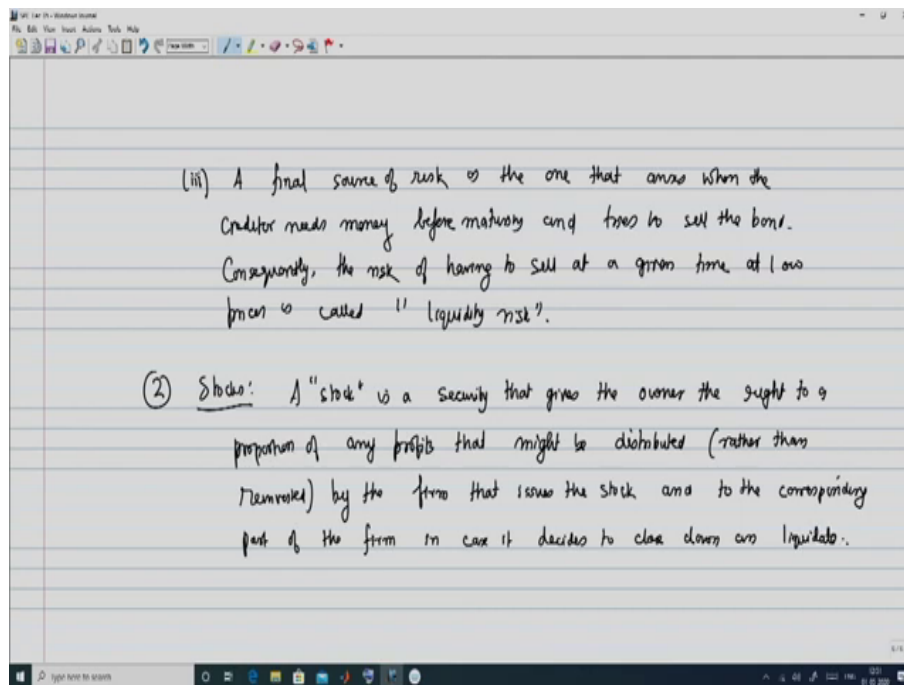 File Edit View Insert Actions Tools Help
(iii) A final source of risk is the one that arises when the
Creditor needs money before maturity and tries to sell the bond.
Consequently, the risk of having to sell at a given time at low
prices is called "liquidity risk".
② Stocks: A "stock" is a security that gives the owner the right to a
proportion of any profits that might be distributed (rather than
reinvested) by the firm that issues the stock and to the corresponding
part of the firm in case it decides to close down and liquidate.
Type here to search
12:51
01-05-2020